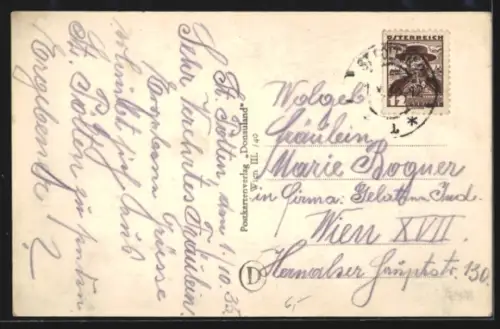 St. Pölten, am 1./10. 35.
Sehr verehrtes Fräulein!
Ergebene Grüsse
erlaubt sich aus
St. Pölten zu senden
Ergebenste
Postkartenverlag „Donauland"
Wien III. /40
D
ÖSTERREICH
12
Wolgeb.
Fräulein
Marie Rogner
in Firma: Gelatine Ind.
Wien XVII.
Hernalser Hauptstr. 130.
6,-